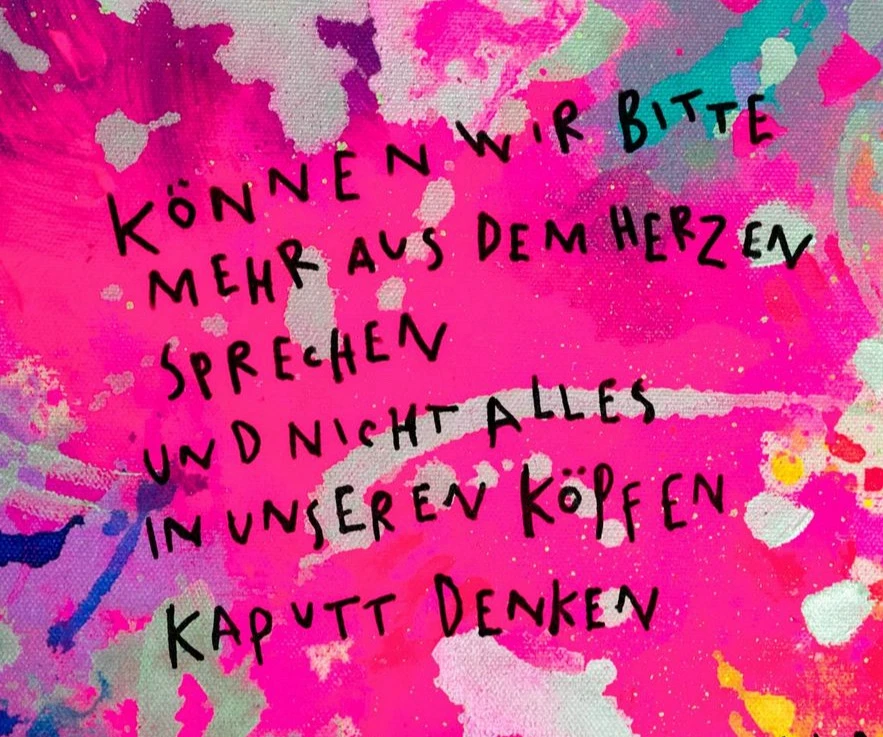 KÖNNEN WIR BITTE
MEHR AUS DEM HERZEN
SPRECHEN
UND NICHT ALLES
IN UNSEREN KÖPFEN
KAPUTT DENKEN